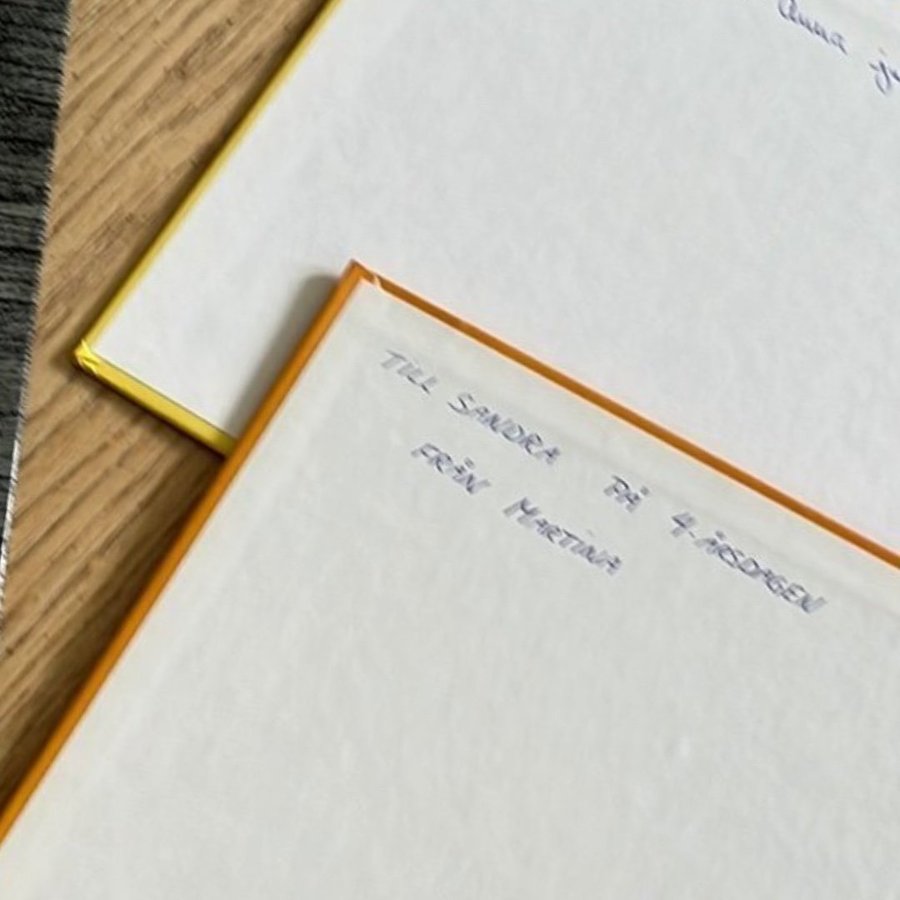 Anna
TILL SANDRA PÅ 4-ÅRSDAGEN
FRÅN MARTINA